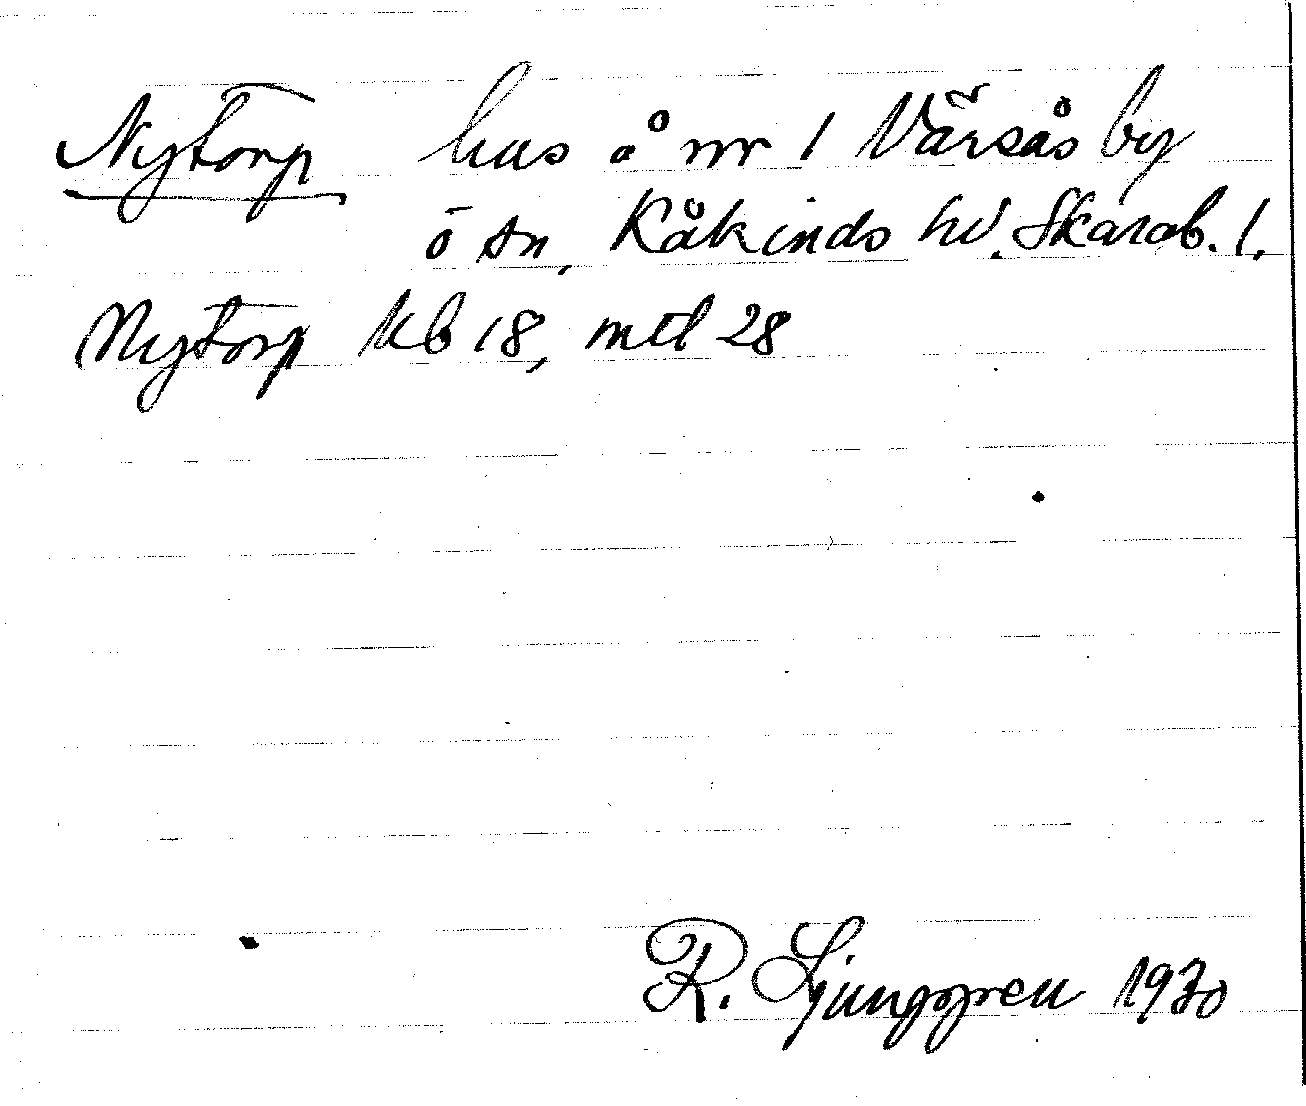 Nytorp hus å nr 1 Värsås by
ö sn, Kåkinds hd. Skarab. l.
Nytorp kb 18, mtl 28
R. Ljunggren 1930